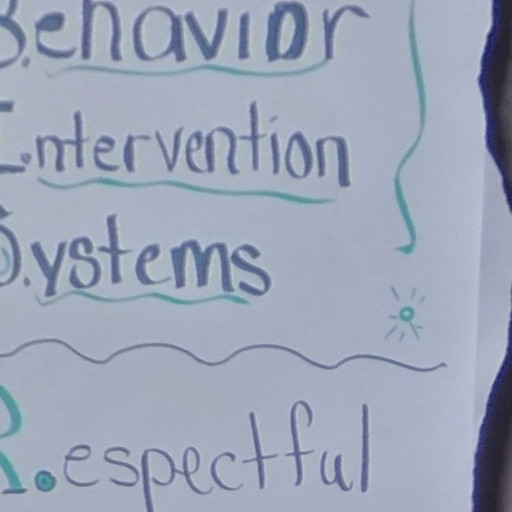 B.ehavior
I.ntervention
S.ystems
R.espectful